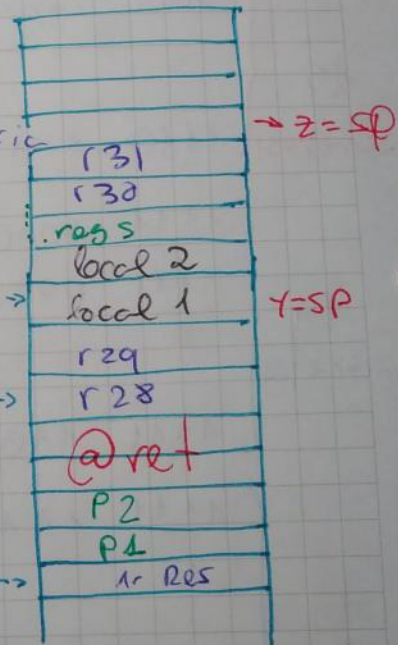 ric
→ z = SP
r31
r30
regs
local 2
local 1
Y=SP
r29
r28
@ret
P2
P1
1r Res